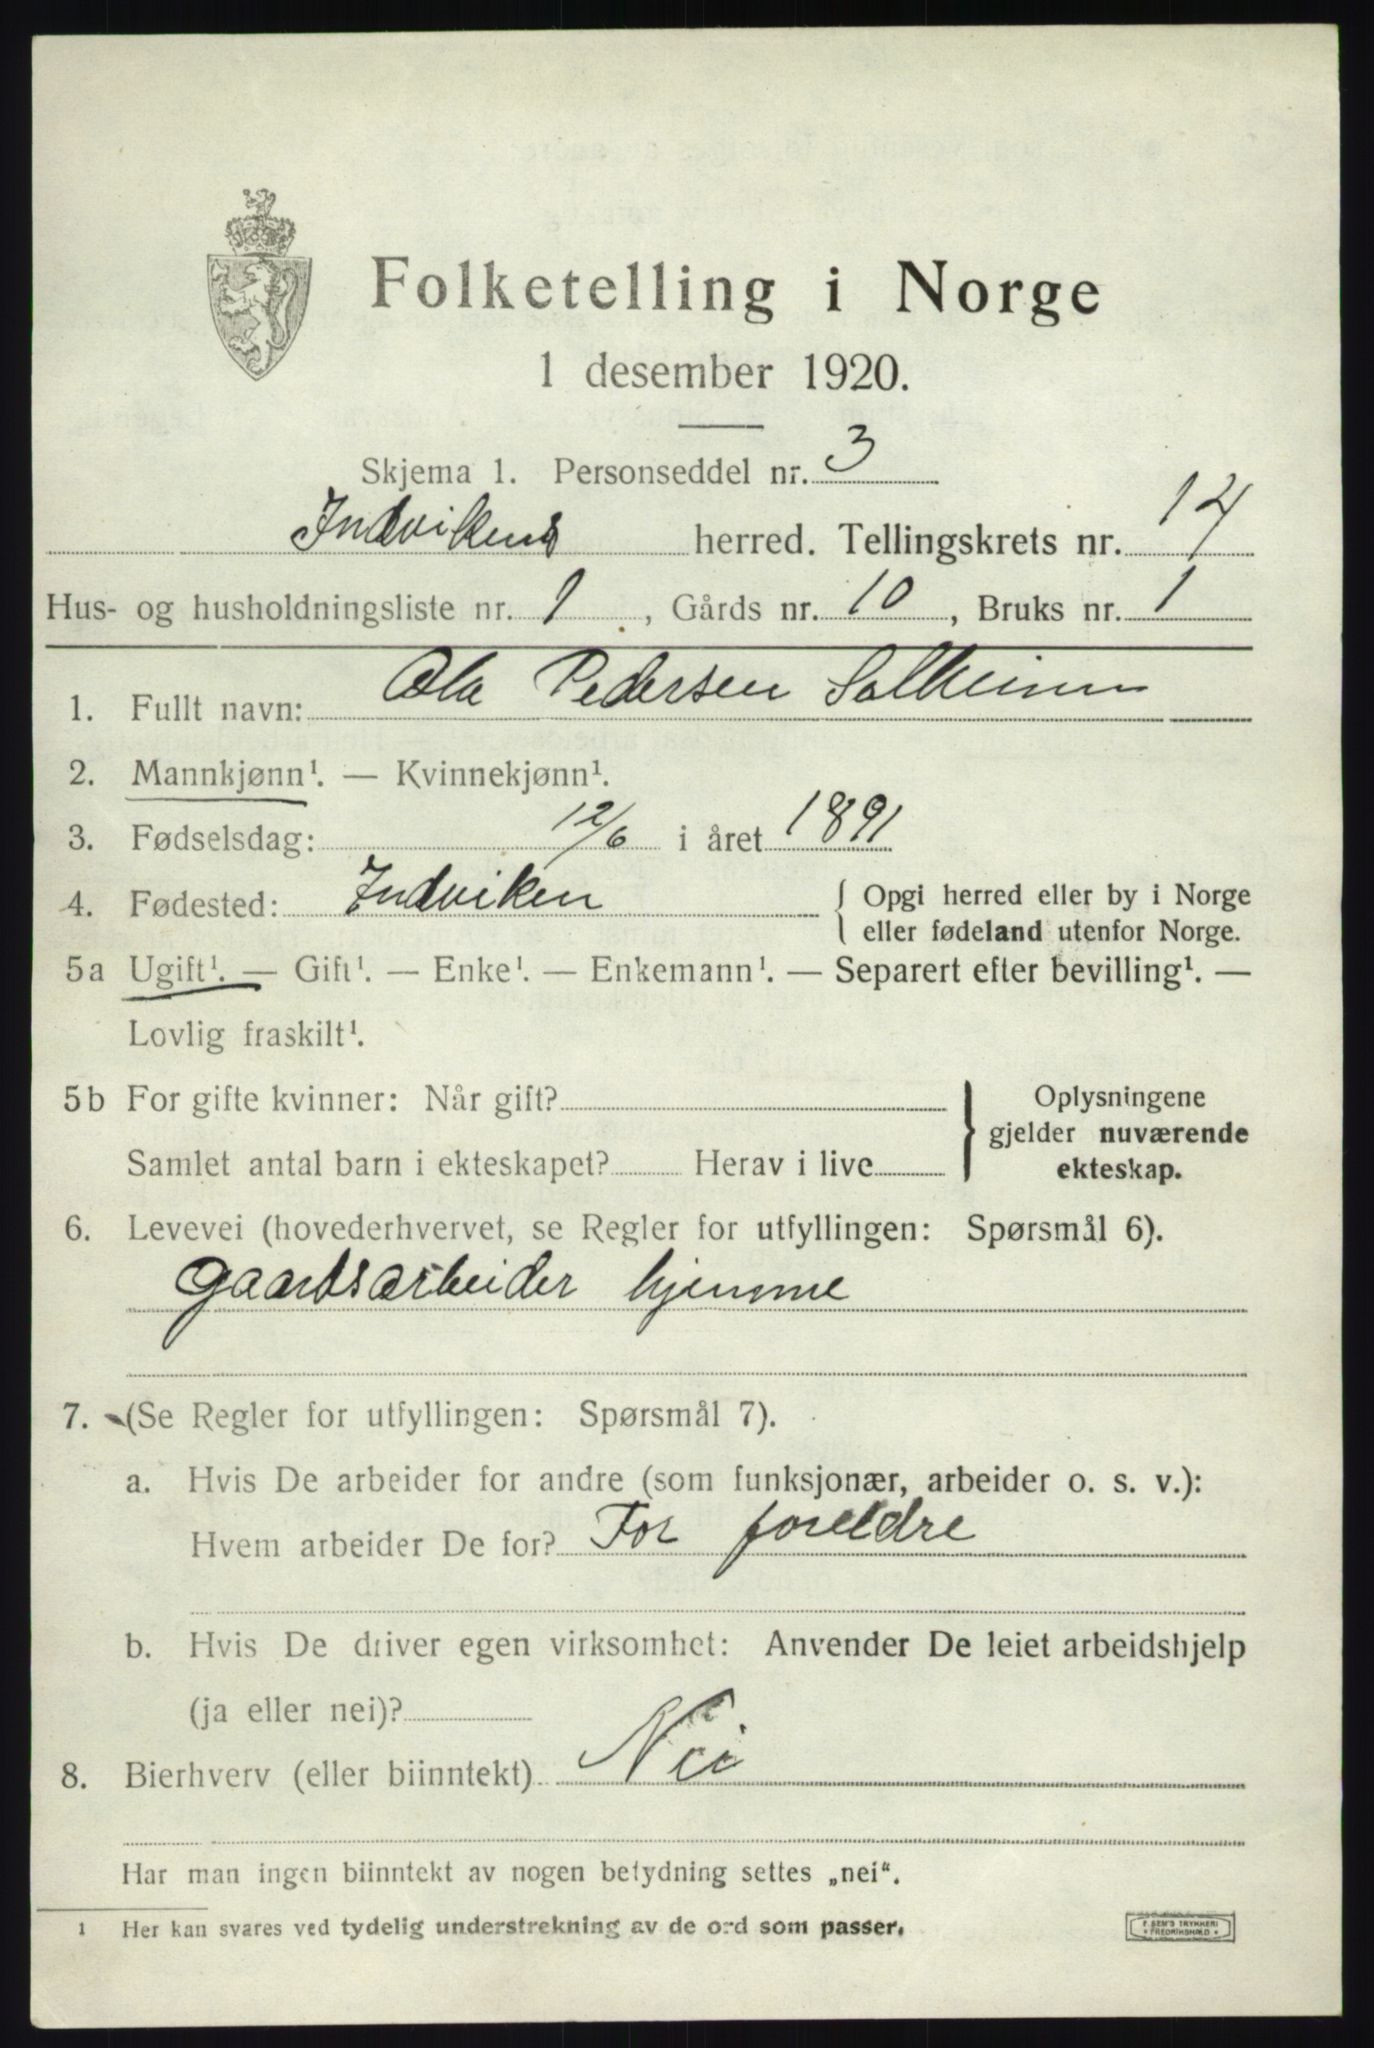 Folketelling i Norge
1 desember 1920.
Skjema 1. Personseddel nr. 3
Indvikens herred. Tellingskrets nr. 14
Hus- og husholdningsliste nr. 1, Gårds nr. 10, Bruks nr. 1
1. Fullt navn: Ola Pedersen Solheim
2. Mannkjønn¹. — Kvinnekjønn¹.
3. Fødselsdag: 12/6 i året 1891
4. Fødested: Indviken { Opgi herred eller by i Norge
eller fødeland utenfor Norge.
5a Ugift¹. — Gift¹. — Enke¹. — Enkemann¹. — Separert efter bevilling¹. —
Lovlig fraskilt¹.
5b For gifte kvinner: Når gift? } Oplysningene
gjelder nuværende
Samlet antal barn i ekteskapet? Herav i live
ekteskap.
6. Levevei (hovederhvervet, se Regler for utfyllingen: Spørsmål 6).
Gaardsarbeider hjemme
7. (Se Regler for utfyllingen: Spørsmål 7).
a. Hvis De arbeider for andre (som funksjonær, arbeider o. s. v.):
Hvem arbeider De for? For foreldre
b. Hvis De driver egen virksomhet: Anvender De leiet arbeidshjelp
(ja eller nei)?
8. Bierhverv (eller biinntekt) Nei
Har man ingen biinntekt av nogen betydning settes „nei".
1 Her kan svares ved tydelig understrekning av de ord som passer.
F. SEM'S TRYKKERI
* FREDRIKSHALD *